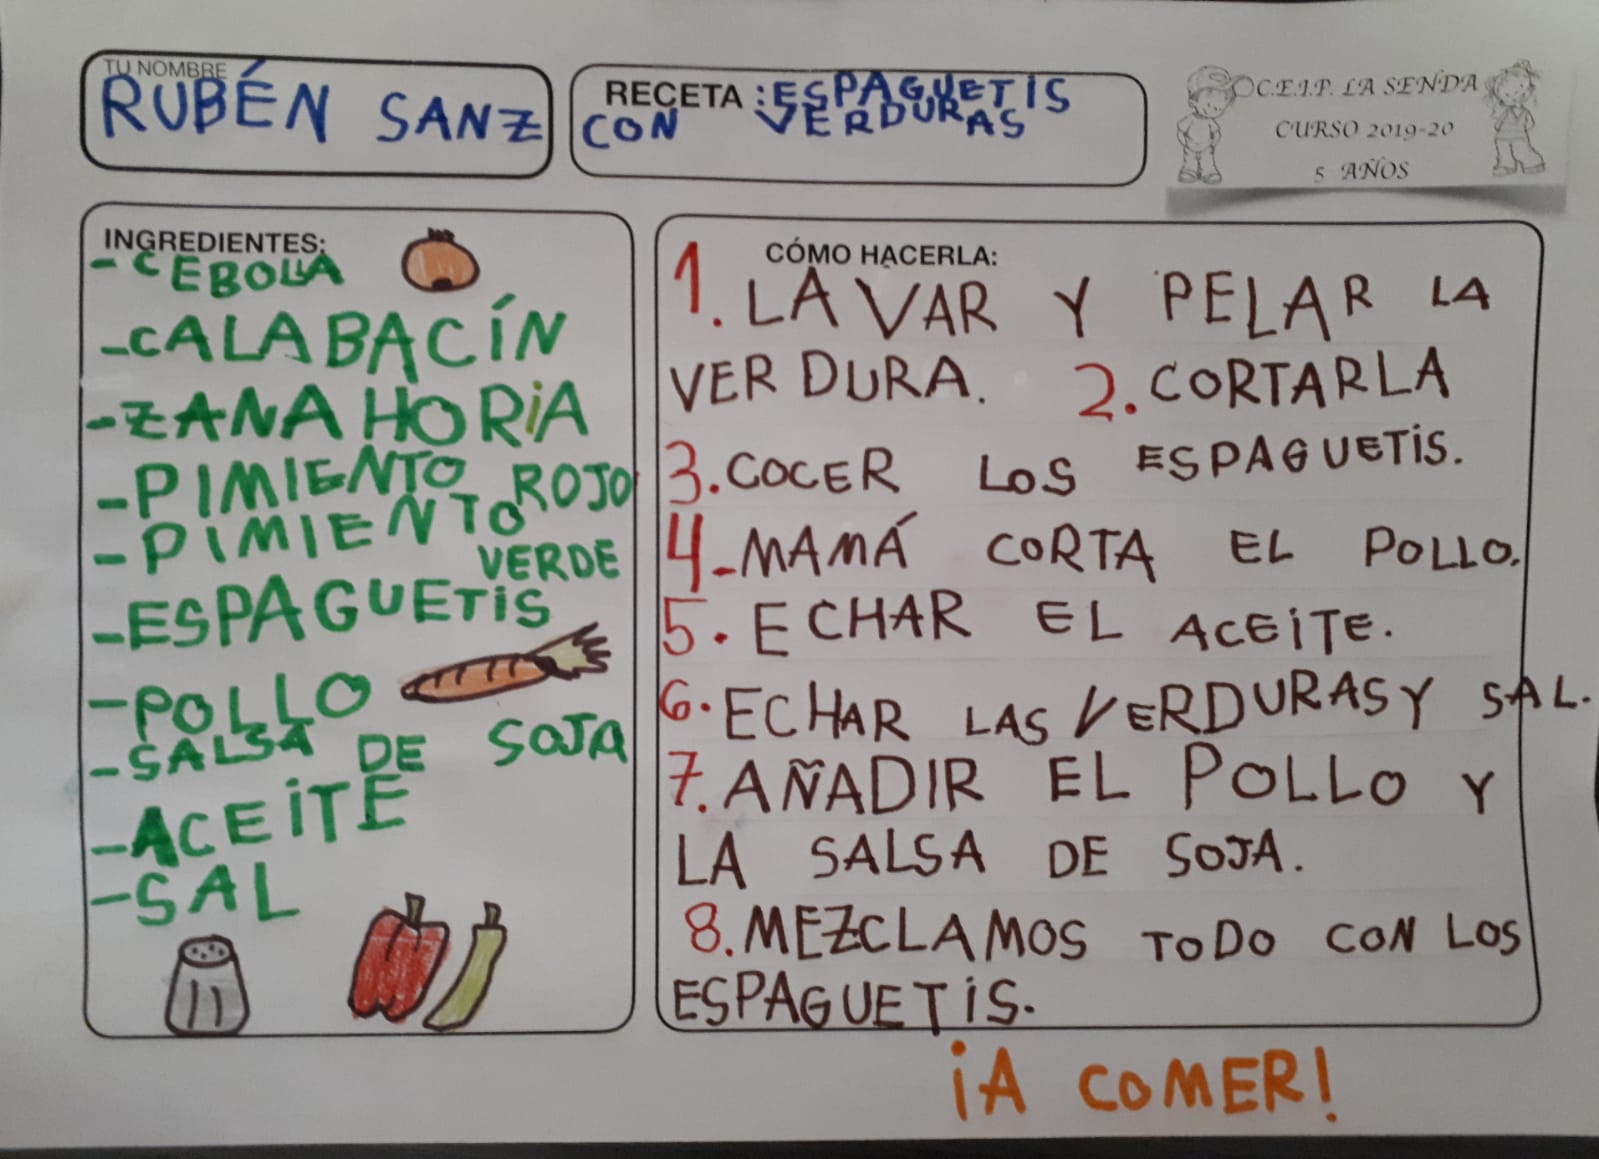 TU NOMBRE
RUBÉN SANZ
RECETA : ESPAGUETIS
CON VERDURAS
C.E.I.P. LA SENDA
CURSO 2019-20
5 AÑOS
INGREDIENTES:
- CEBOLLA
- CALABACÍN
- ZANAHORIA
- PIMIENTO ROJO
- PIMIENTO
VERDE
- ESPAGUETIS
- POLLO
- SALSA DE SOJA
- ACEITE
- SAL
CÓMO HACERLA:
1. LAVAR Y PELAR LA
VERDURA. 2. CORTARLA
3. COCER LOS ESPAGUETIS.
4- MAMÁ CORTA EL POLLO.
5. ECHAR EL ACEITE.
6. ECHAR LAS VERDURAS Y SAL.
7. AÑADIR EL POLLO Y
LA SALSA DE SOJA.
8. MEZCLAMOS TODO CON LOS
ESPAGUETIS.
¡A COMER!